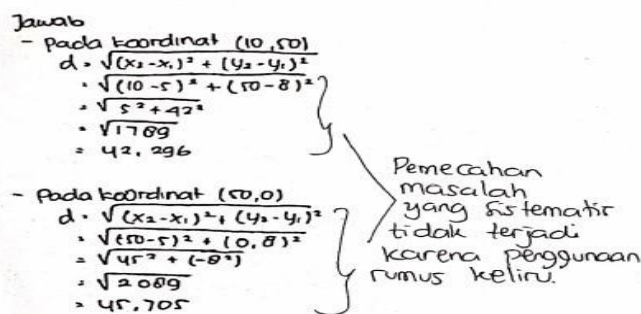 Jawab
- Pada koordinat (10,50)
d = √(x₂-x₁)² + (y₂-y₁)²
= √(10-5)² + (50-8)²
= √5² + 42²
= √1789
= 42,296
- Pada koordinat (50,0)
d = √(x₂-x₁)² + (y₂-y₁)²
= √(50-5)² + (0,8)²
= √45² + (-8²)
= √2089
= 45,705
Pemecahan
masalah
yang sistematis
tidak terjadi
karena penggunaan
rumus keliru.